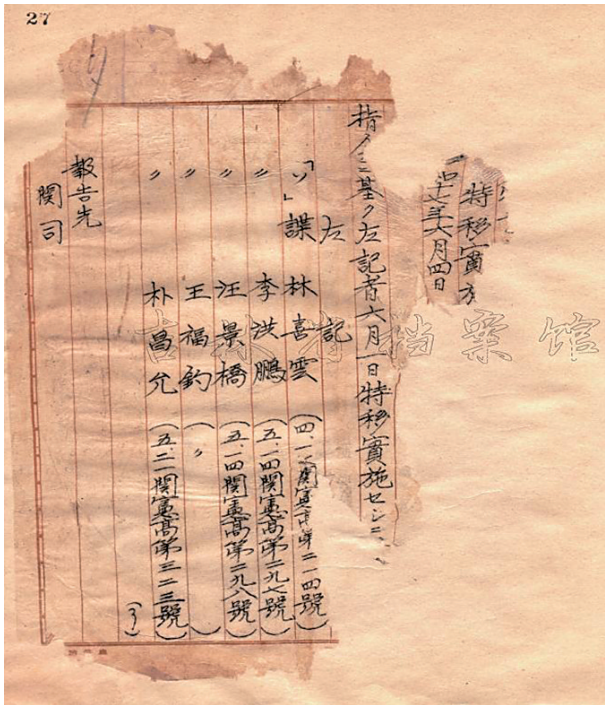 27
特移實
昭十七年六月四日
指ノミニ基ク左記者六月一日特移實施セシニ
左記
「ソ」諜 林喜雲 (四、一 関憲高第二一四號)
〃 李洪鵬 (五、一四関憲高第二九七號)
〃 汪景橋 (五、一四関憲高第二九八號)
〃 王福鈞 ( 〃 )
〃 朴昌允 (五、二一関憲高第三二三號)
(了)
報告先
関司
吉林省档案馆